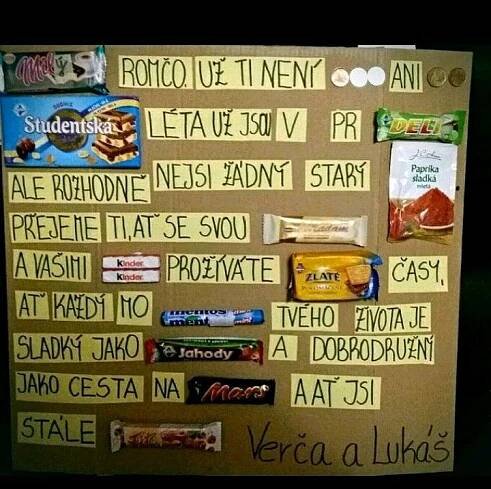 Milk ROMČO, UŽ TI NENÍ ANI
Studentská LÉTA UŽ JSOU V PR DELI
ALE ROZHODNĚ NEJSI ŽÁDNÝ STARÝ Paprika sladká mletá
PŘEJEME TI, AŤ SE SVOU
A VAŠIMI Kinder Kinder PROŽÍVÁTE ZLATÉ ČASY,
AŤ KAŽDÝ MO mentos TVÉHO ŽIVOTA JE
SLADKÝ JAKO Jahody A DOBRODRUŽNÝ
JAKO CESTA NA Mars A AŤ JSI
STÁLE
Verča a Lukáš